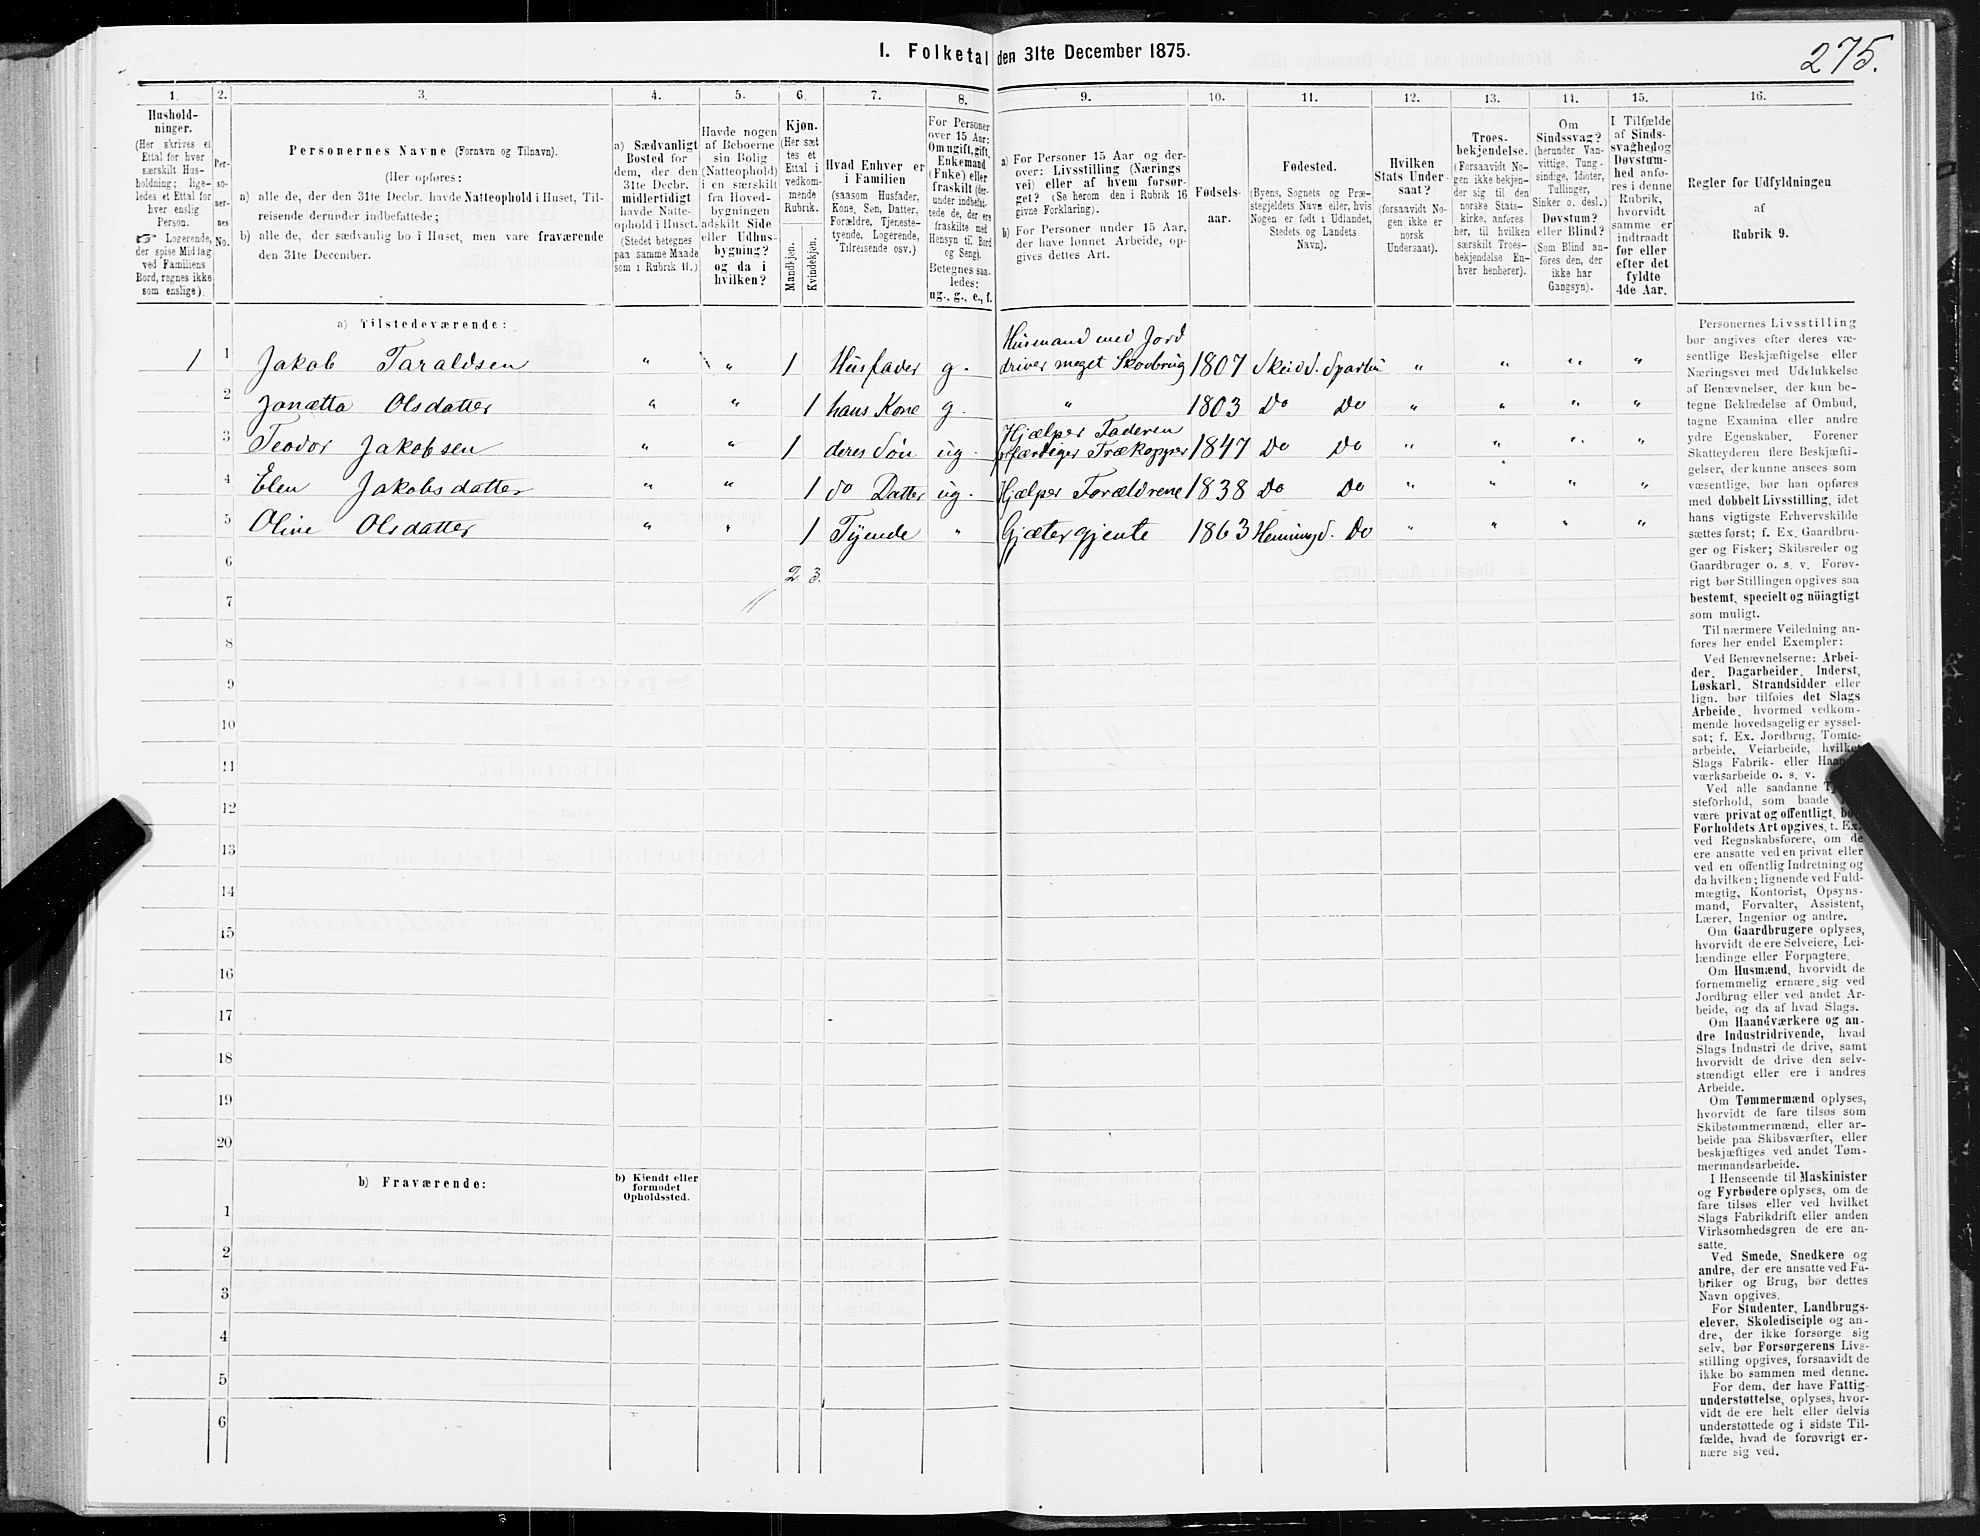 275.
I. Folketal den 31te December 1875.
1. 2. 3. 4. 5. 6. 7. 8. 9. 10. 11. 12. 13. 14. 15. 16.
Hushold-
ninger.
(Her skrives et
Ettal for hver
særskilt Hus-
holdning; lige-
ledes et Ettal for
hver enslig
Person.
☞ Logerende,
der spise Middag
ved Familiens
Bord, regnes ikke
som enslige).
Per-
so-
ner-
nes
No.
Personernes Navne (Fornavn og Tilnavn).
(Her opføres:
a) alle de, der den 31te Decbr. havde Natteophold i Huset, Til-
reisende derunder indbefattede;
b) alle de, der sædvanlig bo i Huset, men vare fraværende
den 31te December.
a) Sædvanligt
Bosted for
dem, der den
31te Decbr.
midlertidigt
havde Natte-
ophold i Huset.
(Stedet betegnes
paa samme Maade
som i Rubrik 11.)
Havde nogen
af Beboerne
sin Bolig
(Natteophold)
i en særskilt
fra Hoved-
bygningen
adskilt Side
eller Udhus-
bygning?
og da i
hvilken?
Kjøn.
(Her sæt
tes et
Ettal i
vedkom-
mende
Rubrik.
Mandkjøn.
Kvindekjøn.
Hvad Enhver er
i Familien
(saasom Husfader,
Kone, Søn, Datter,
Forældre, Tjeneste-
tyende, Logerende,
Tilreisende osv.)
For Personer
over 15 Aar:
Om ugift, gift,
Enkemand
(Enke) eller
fraskilt (der-
under indbefat-
tede de, der ere
fraskilte med
Hensyn til Bord
og Seng).
Betegnes saa-
ledes:
ug., g., e., f.
a) For Personer 15 Aar og der-
over: Livsstilling (Nærings
vei) eller af hvem forsør-
get? (Se herom den i Rubrik 16
givne Forklaring).
b) For Personer under 15 Aar,
der have lønnet Arbeide, op-
gives dettes Art.
Fødsels-
aar.
Fødested.
(Byens, Sognets og Præ-
stegjeldets Navn eller, hvis
Nogen er født i Udlandet,
Stedets og Landets
Navn).
Hvilken
Stats Under-
saat?
(forsaavidt No-
gen ikke er
norsk
Undersaat).
Troes-
bekjendelse.
(Forsaavidt No-
gen ikke bekjen-
der sig til den
norske Stats-
kirke, anføres
her, til hvilken
særskilt Troes-
bekjendelse En-
hver henhører).
Om
Sindssvag?
(herunder Van-
vittige, Tung-
sindige, Idioter,
Tullinger,
Sinker o. desl.)
Døvstum?
eller Blind?
(Som Blind an-
føres den, der
ikke har
Gangsyn).
I Tilfælde
af Sinds-
svaghed og
Døvstum-
hed anfø-
res i denne
Rubrik,
hvorvidt
samme er
indtraadt
før eller
efter det
fyldte
4de Aar.
Regler for Udfyldningen
af
Rubrik 9.
a) Tilstedeværende:
Husmand med Jord
1 1 Jakob Taraldsen " " 1 Husfader g. driver meget Skovbrug 1807 Skeid S. Sparbu " " " "
2 Janætta Olsdatter " " 1 hans Kone g. " 1803 Do Do " " " "
Hjælper Faderen
3 Teodor Jakobsen " " 1 deres Søn ug. forfærdiger Trækopper 1847 Do Do " " " "
4 Elen Jakobsdatter " " 1 do Datter ug. Hjælper Forældrene 1838 Do Do " " " "
5 Oline Olsdatter " " 1 Tyende " Gjætergjente 1863 Henning S. Do " " " "
6 2 3.
7
8
9
10
11
12
13
14
15
16
17
18
19
20
b) Fraværende:
b) Kjendt eller
formodet
Opholdssted.
1
2
3
4
5
6
Personernes Livsstilling
bør angives efter deres væ-
sentlige Beskjæftigelse eller
Næringsvei med Udelukkelse
af Benævnelser, der kun be-
tegne Beklædelse af Ombud,
tagne Examina eller andre
ydre Egenskaber. Forener
Skatteyderen flere Beskjæfti-
gelser, der kunne ansees som
væsentlige, bør han opføres
med dobbelt Livsstilling, idet
hans vigtigste Erhvervskilde
sættes først; f. Ex. Gaardbru-
ger og Fisker; Skibsreder og
Gaardbruger o. s. v. Forøv-
rigt bør Stillingen opgives saa
bestemt, specielt og nöiagtigt
som muligt.
Til nærmere Veiledning an-
føres her endel Exempler:
Ved Benævnelserne: Arbei-
der, Dagarbeider, Inderst,
Løskarl, Strandsidder eller
lign. bør tilføies det Slags
Arbeide, hvormed vedkom-
mende hovedsagelig er syssel-
sat; f. Ex. Jordbrug, Tomte-
arbeide, Veiarbeide, hvilket
Slags Fabrik- eller Haand-
værksarbeide o. s. v.
Ved alle saadanne
steforhold, som baade
være privat og offentligt, bør
Forholdets Art opgives, t. Ex.
ved Regnskabsførere, om de
ere ansatte ved en privat eller
ved en offentlig Indretning og
da hvilken; lignende ved Fuld-
mægtig, Kontorist, Opsyns-
mand, Forvalter, Assistent,
Lærer, Ingeniør og andre.
Om Gaardbrugere oplyses,
hvorvidt de ere Selveiere, Lei-
lændinge eller Forpagtere.
Om Husmænd, hvorvidt de
fornemmelig ernære sig ved
Jordbrug eller ved andet Ar-
beide, og da af hvad Slags.
Om Haandværkere og an-
dre Industridrivende, hvad
Slags Industri de drive, samt
hvorvidt de drive den selv-
stændigt eller ere i andres
Arbeide.
Om Tømmermænd oplyses,
hvorvidt de fare tilsøs som
Skibstømmermænd, eller ar-
beide paa Skibsværfter, eller
beskjæftiges ved andet Tøm-
mermandsarbeide.
I Henseende til Maskinister
og Fyrbødere oplyses, om de
fare tilsøs eller ved hvilket
Slags Fabrikdrift eller anden
Virksomhedsgren de ere an-
satte.
Ved Smede, Snedkere og
andre, der ere ansatte ved Fa-
briker og Brug, bør dettes
Navn opgives.
For Studenter, Landbrugs-
elever, Skoledisciple og an-
dre, der ikke forsørge sig
selv, bør Forsørgerens Livs-
stilling opgives, forsaavidt de
ikke bo sammen med denne.
For dem, der have Fattig
understøttelse, oplyses, hvor-
vidt de ere helt eller delvis
understøttede og i sidste Til-
fælde, hvad de forøvrigt er-
nære sig ved.